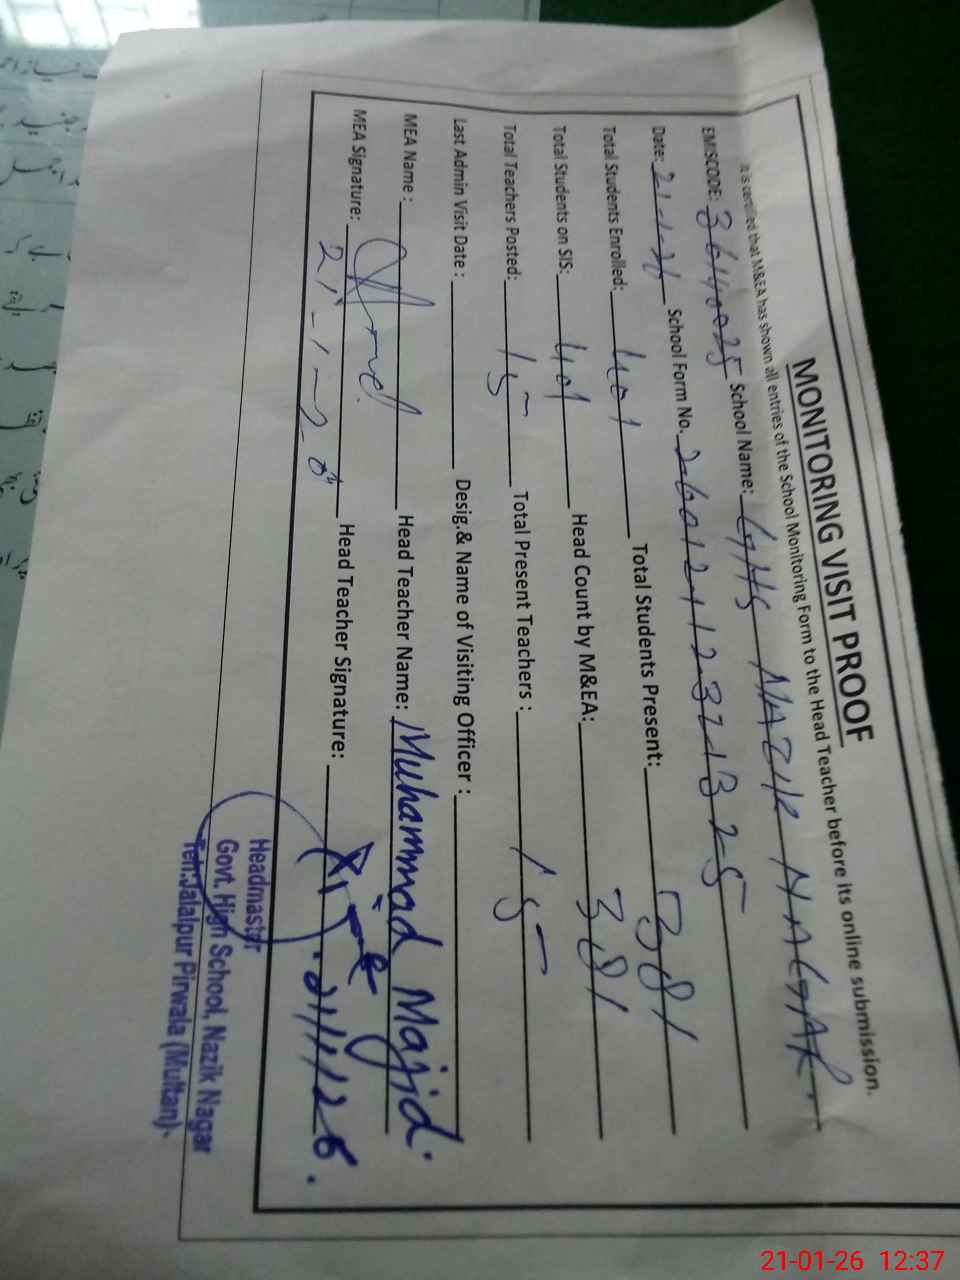 MONITORING VISIT PROOF
It is certified that M&EA has shown all entries of the School Monitoring Form to the Head Teacher before its online submission.
EMISCODE: 36140025 School Name: GHS NAZIK NAGAR.
Date: 21-1-26 School Form No. 26012112321325
Total Students Enrolled: 401 Total Students Present: 381
Total Students on SIS: 401 Head Count by M&EA: 381
Total Teachers Posted: 15 Total Present Teachers : 15
Last Admin Visit Date : Desig.& Name of Visiting Officer :
MEA Name : Head Teacher Name: Muhammad Majid.
MEA Signature: Head Teacher Signature: 21/1/26.
Headmaster
Govt. High School, Nazik Nagar
Teh:Jalalpur Pirwala (Multan).
21-01-26 12:37